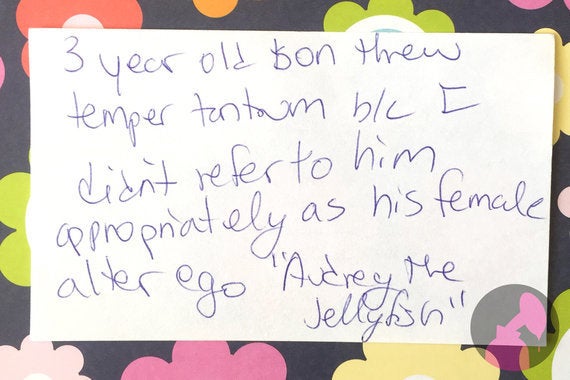 3 year old son threw
temper tantrum b/c I
didn't refer to him
appropriately as his female
alter ego "Audrey the
Jellyfish"